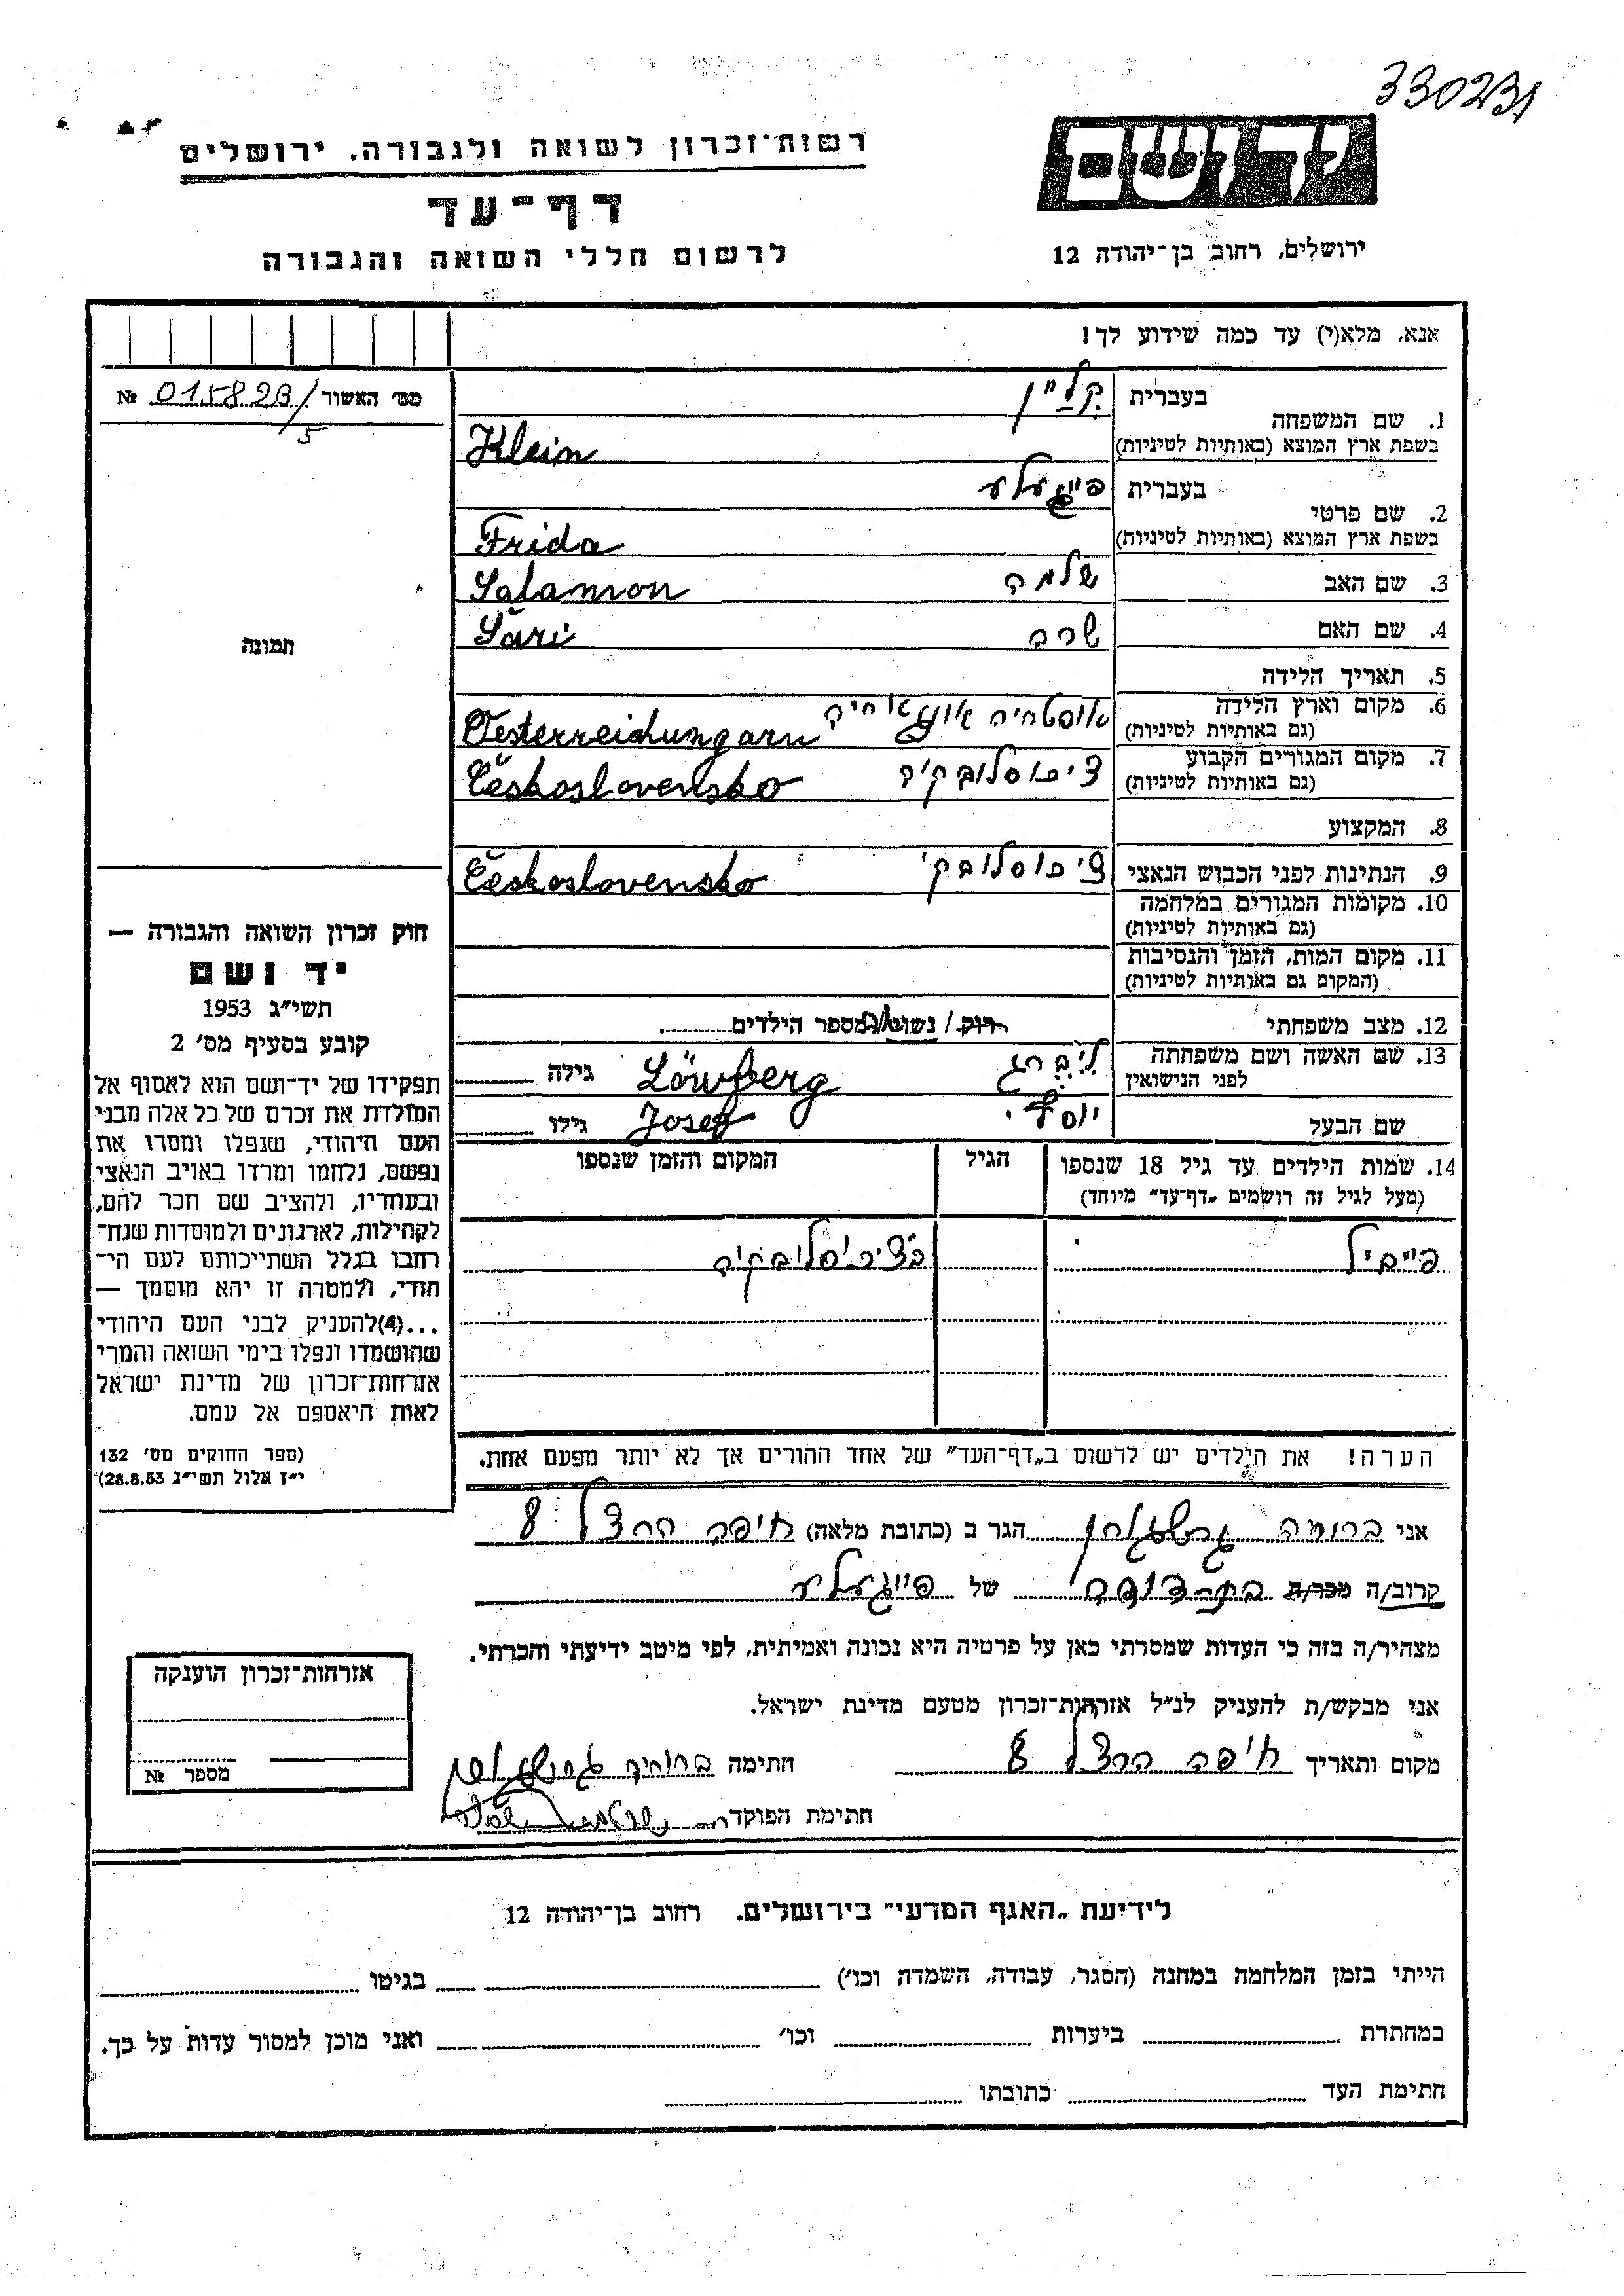 330231
יד ושם
רשות־זכרון לשואה ולגבורה, ירושלים
דף־עד
לרשום חללי השואה והגבורה
ירושלים, רחוב בן־יהודה 12
אנא, מלא(י) עד כמה שידוע לך!
מס׳ האשור № 015823/5
1. שם המשפחה
בעברית קליין
בשפת ארץ המוצא (באותיות לטיניות) Klein
2. שם פרטי
בעברית פייגעלע
בשפת ארץ המוצא (באותיות לטיניות) Frida
3. שם האב שלמה Salamon
4. שם האם שרה Sari
5. תאריך הלידה
6. מקום וארץ הלידה
(גם באותיות לטיניות) Oesterreichungarn
7. מקום המגורים הקבוע
(גם באותיות לטיניות) Československo
8. המקצוע
9. הנתינות לפני הכבוש הנאצי Československo
10. מקומות המגורים במלחמה
(גם באותיות לטיניות)
11. מקום המות, הזמן והנסיבות
(המקום גם באותיות לטיניות)
12. מצב משפחתי רוק / נשוי/אה מספר הילדים
13. שם האשה ושם משפחתה
לפני הנישואין Löwberg גילה
שם הבעל יוסף Josef גילו
14. שמות הילדים עד גיל 18 שנספו הגיל המקום והזמן שנספו
(מעל לגיל זה רושמים „דף־עד״ מיוחד)
פייביל
תמונה
חוק זכרון השואה והגבורה —
יד ושם
תשי״ג 1953
קובע בסעיף מס׳ 2
תפקידו של יד־ושם הוא לאסוף אל
המולדת את זכרם של כל אלה מבני
העם היהודי, שנפלו ומסרו את
נפשם, נלחמו ומרדו באויב הנאצי
ובעוזריו, ולהציב שם וזכר להם,
לקהילות, לארגונים ולמוסדות שנח־
רבו בגלל השתייכותם לעם הי־
הודי, ולמטרה זו יהא מוסמך —
...(4) להעניק לבני העם היהודי
שהושמדו ונפלו בימי השואה והמרי
אזרחות־זכרון של מדינת ישראל
לאות היאספם אל עמם.
(ספר החוקים מס׳ 132
י״ז אלול תשי״ג 28.8.53)
הערה! את הילדים יש לרשום ב„דף־העד״ של אחד ההורים אך לא יותר מפעם אחת.
אני הגר ב (כתובת מלאה) חיפה הרצל 8
קרוב/ה מכר/ה בת־דודה של פייגעלע
מצהיר/ה בזה כי העדות שמסרתי כאן על פרטיה היא נכונה ואמיתית, לפי מיטב ידיעתי והכרתי.
אני מבקש/ת להעניק לנ״ל אזרחות־זכרון מטעם מדינת ישראל.
מקום ותאריך חיפה הרצל 8 חתימה
חתימת הפוקד
אזרחות־זכרון הוענקה
מספר №
לידיעת „האגף המדעי״ בירושלים. רחוב בן־יהודה 12
הייתי בזמן המלחמה במחנה (הסגר, עבודה, השמדה וכו׳) בגיטו
במחתרת ביערות וכו׳ ואני מוכן למסור עדות על כך.
חתימת העד כתובתו